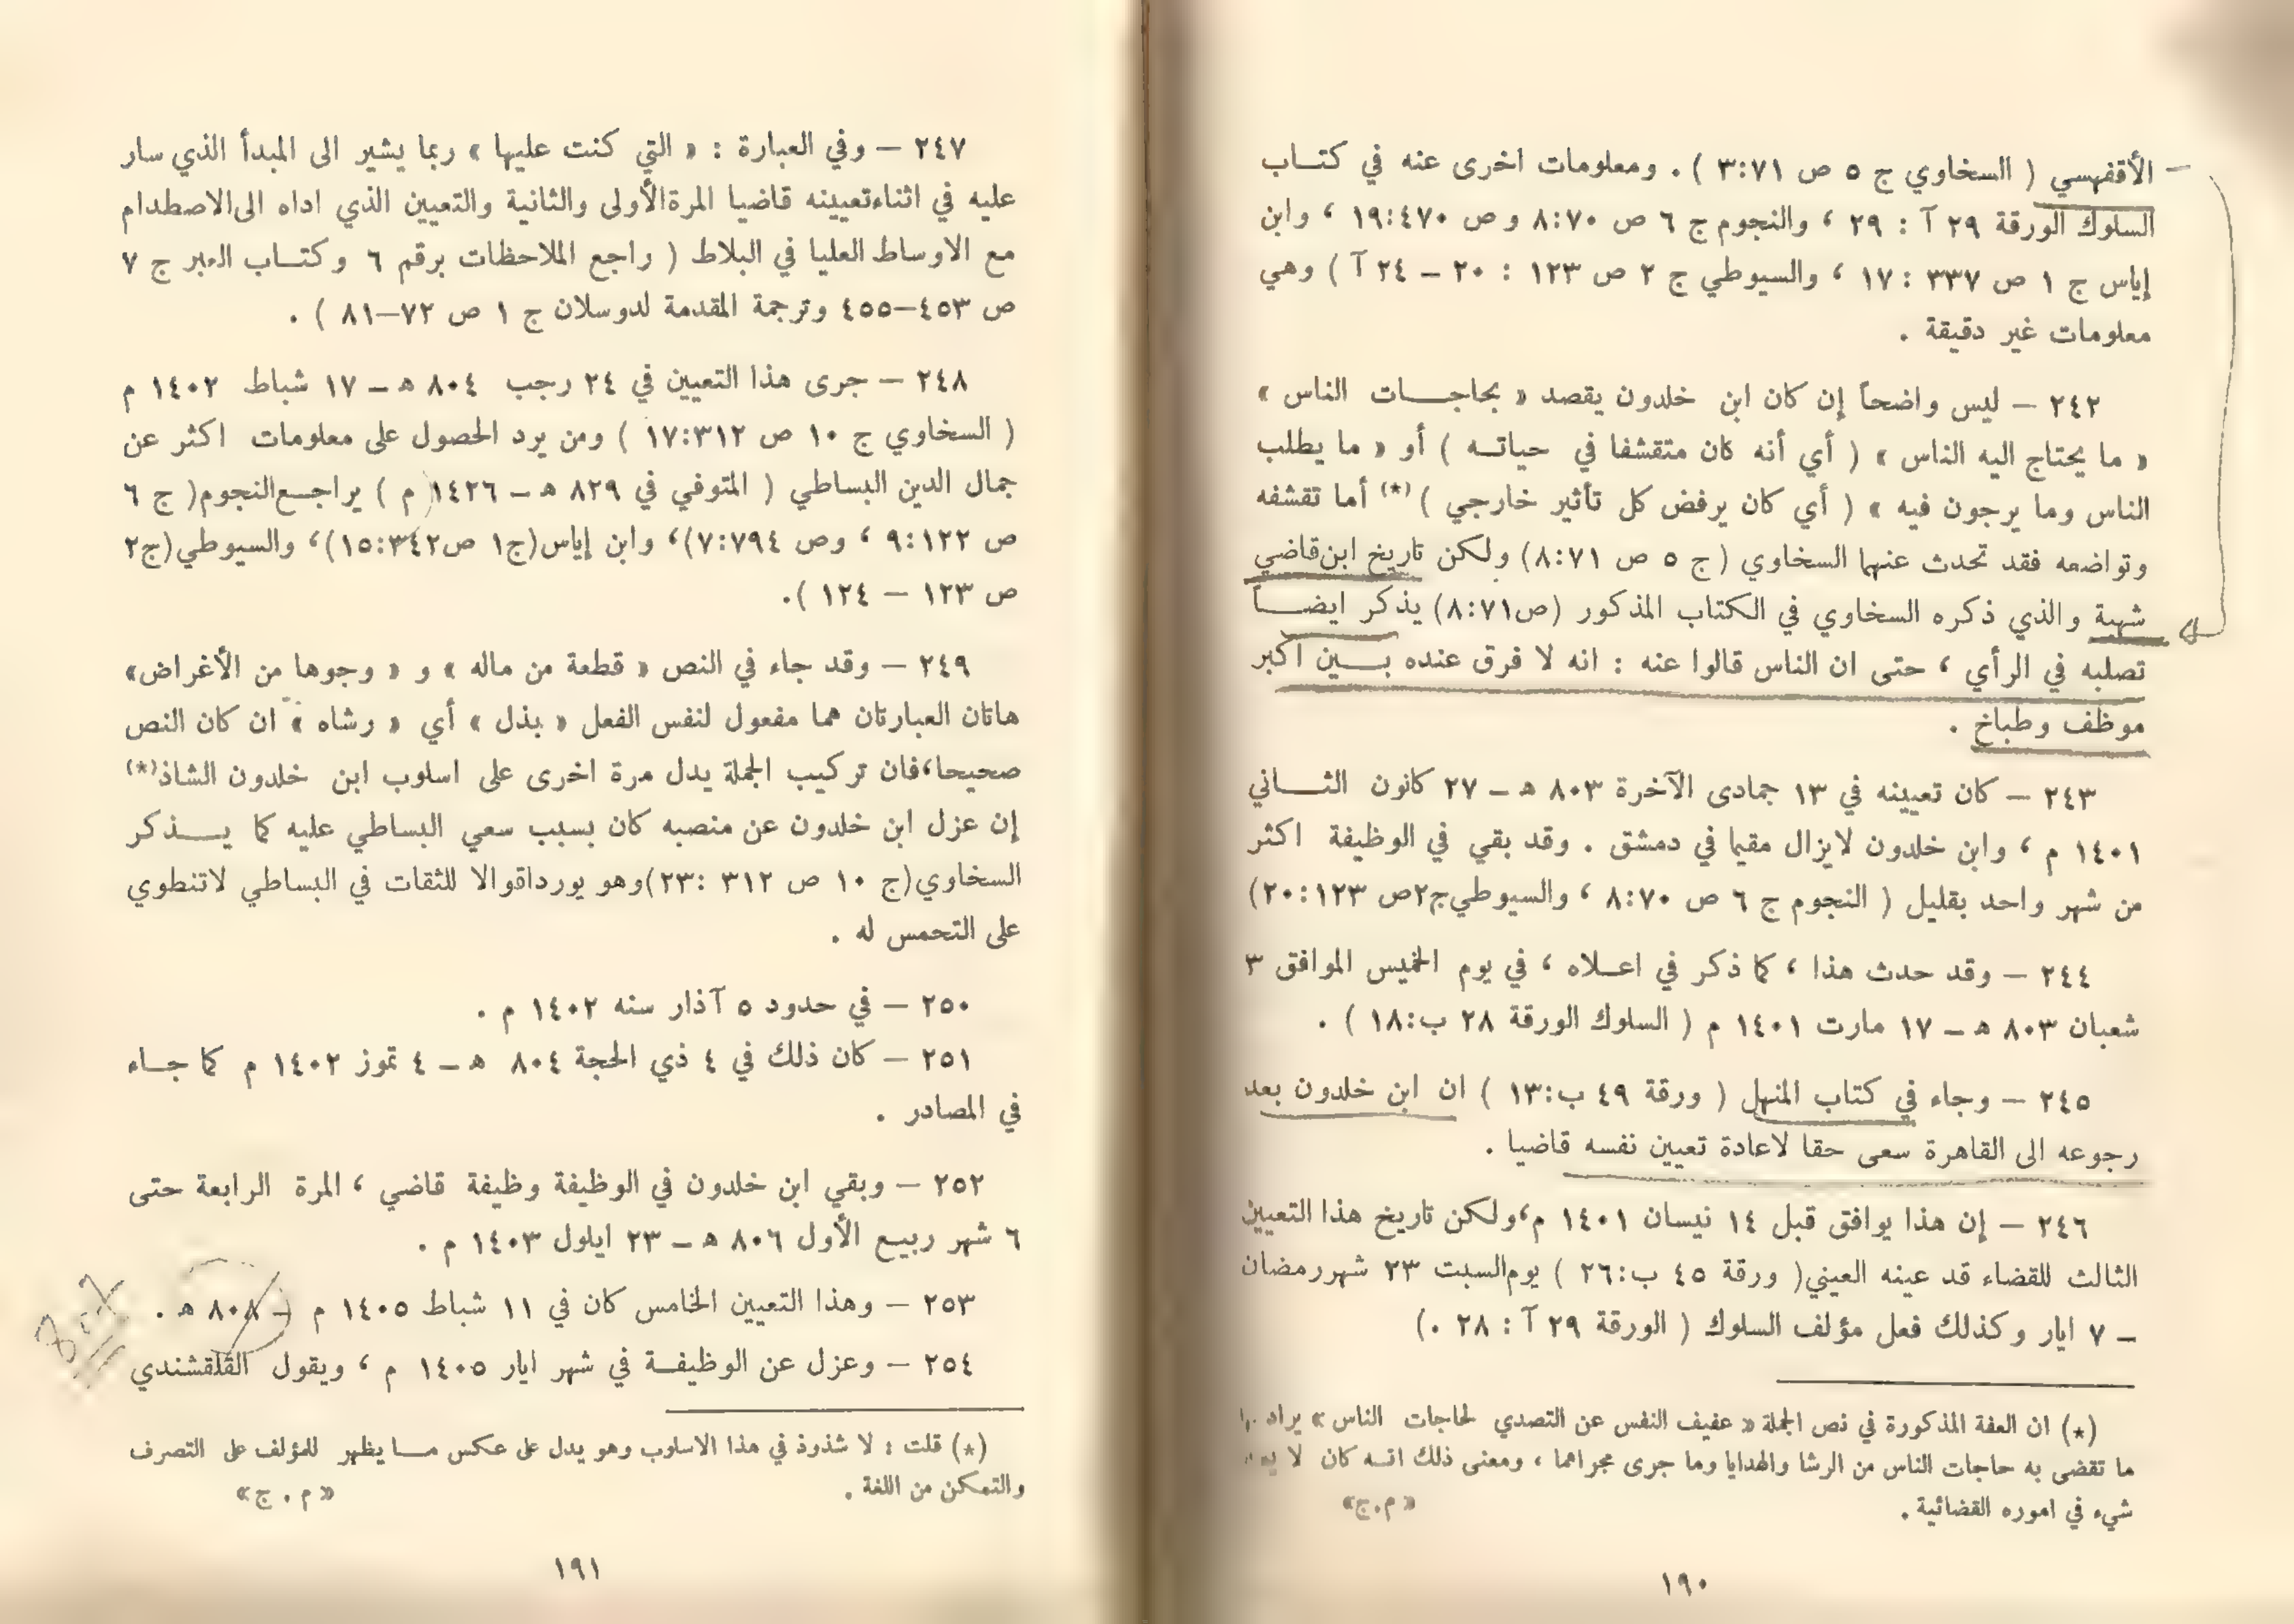 – الأقفهسي ( السخاوي ج ٥ ص ٣:٧١ ) . ومعلومات اخرى عنه في كتــاب
السلوك الورقة ٢٩ آ : ٢٩ ، والنجوم ج ٦ ص ٨:٧٠ و ص ١٩:٤٧٠ ، وابن
إياس ج ١ ص ٣٣٧ : ١٧ ، والسيوطي ج ٢ ص ١٢٣ : ٢٠ – ٢٤ آ ) وهي
معلومات غير دقيقة .
٢٤٢ – ليس واضحاً إن كان ابن خلدون يقصد « بحاجــات الناس »
« ما يحتاج اليه الناس » ( أي أنه كان متقشفا في حياتــه ) أو « ما يطلب
الناس وما يرجون فيه » ( أي كان يرفض كل تأثير خارجي ) (*) أما تقشفه
وتواضعه فقد تحدث عنهما السخاوي ( ج ٥ ص ٨:٧١) ولكن تاريخ ابن قاضي
شهبة والذي ذكره السخاوي في الكتاب المذكور (ص٨:٧١) يذكر ايضــاً
تصلبه في الرأي ، حتى ان الناس قالوا عنه : انه لا فرق عنده بــين اكبر
موظف وطباخ .
٢٤٣ – كان تعيينه في ١٣ جمادى الآخرة ٨٠٣ هـ – ٢٧ كانون الثــاني
١٤٠١ م ، وابن خلدون لايزال مقيما في دمشق . وقد بقي في الوظيفة اكثر
من شهر واحد بقليل ( النجوم ج ٦ ص ٨:٧٠ ، والسيوطي ج٢ص ٢٠:١٢٣)
٢٤٤ – وقد حدث هذا ، كما ذكر في اعــلاه ، في يوم الخميس الموافق ٣
شعبان ٨٠٣ هـ – ١٧ مارت ١٤٠١ م ( السلوك الورقة ٢٨ ب:١٨ ) .
٢٤٥ – وجاء في كتاب المنهل ( ورقة ٤٩ ب:١٣ ) ان ابن خلدون بعد
رجوعه الى القاهرة سعى حقا لاعادة تعيين نفسه قاضيا .
٢٤٦ – إن هذا يوافق قبل ١٤ نيسان ١٤٠١ م،ولكن تاريخ هذا التعيين
الثالث للقضاء قد عينه العيني( ورقة ٤٥ ب:٢٦ ) يوم السبت ٢٣ شهر رمضان
– ٧ ايار وكذلك فعل مؤلف السلوك ( الورقة ٢٩ آ : ٢٨ .)
(*) ان العفة المذكورة في نص الجملة « عفيف النفس عن التصدي لحاجات الناس » يراد
ما تقضى به حاجات الناس من الرشا والهدايا وما جرى مجراهما ، ومعنى ذلك انــه كان لا
شيء في اموره القضائية . « م.ج»
١٩٠
٢٤٧ – وفي العبارة : « التي كنت عليها » ربما يشير الى المبدأ الذي سار
عليه في اثناء تعيينه قاضيا المرة الأولى والثانية والتعيين الذي اداه الى الاصطدام
مع الاوساط العليا في البلاط ( راجع الملاحظات برقم ٦ وكتــاب العبر ج ٧
ص ٤٥٣–٤٥٥ وترجمة المقدمة لدوسلان ج ١ ص ٧٢–٨١ ) .
٢٤٨ – جرى هذا التعيين في ٢٤ رجب ٨٠٤ هـ – ١٧ شباط ١٤٠٢ م
( السخاوي ج ١٠ ص ١٧:٣١٢ ) ومن يرد الحصول على معلومات اكثر عن
جمال الدين البساطي ( المتوفي في ٨٢٩ هـ – ١٤٢٦ م ) يراجــع النجوم( ج ٦
ص ٩:١٢٢ ، وص ٧:٧٩٤)، وابن إياس(ج١ ص١٥:٣٤٢)، والسيوطي(ج٢
ص ١٢٣ – ١٢٤ ).
٢٤٩ – وقد جاء في النص « قطعة من ماله » و « وجوها من الأغراض»
هاتان العبارتان هما مفعول لنفس الفعل « بذل » أي « رشاه » ان كان النص
صحيحا،فان تركيب الجملة يدل مرة اخرى على اسلوب ابن خلدون الشاذ(*)
إن عزل ابن خلدون عن منصبه كان بسبب سعي البساطي عليه كما يــذكر
السخاوي(ج ١٠ ص ٣١٢ :٢٣)وهو يورداقوالا للثقات في البساطي لاتنطوي
على التحمس له .
٢٥٠ – في حدود ٥ آذار سنه ١٤٠٢ م .
٢٥١ – كان ذلك في ٤ ذي الحجة ٨٠٤ هـ – ٤ تموز ١٤٠٢ م كما جــاء
في المصادر .
٢٥٢ – وبقي ابن خلدون في الوظيفة وظيفة قاضي ، المرة الرابعة حتى
٦ شهر ربيع الأول ٨٠٦ هـ – ٢٣ ايلول ١٤٠٣ م .
٢٥٣ – وهذا التعيين الخامس كان في ١١ شباط ١٤٠٥ م – ٨٠٨ هـ .
٢٥٤ – وعزل عن الوظيفــة في شهر ايار ١٤٠٥ م ، ويقول القلقشندي
(*) قلت : لا شذوذ في هذا الاسلوب وهو يدل على عكس مــا يظهر للمؤلف على التصرف
والتمكن من اللغة . « م . ج»
١٩١